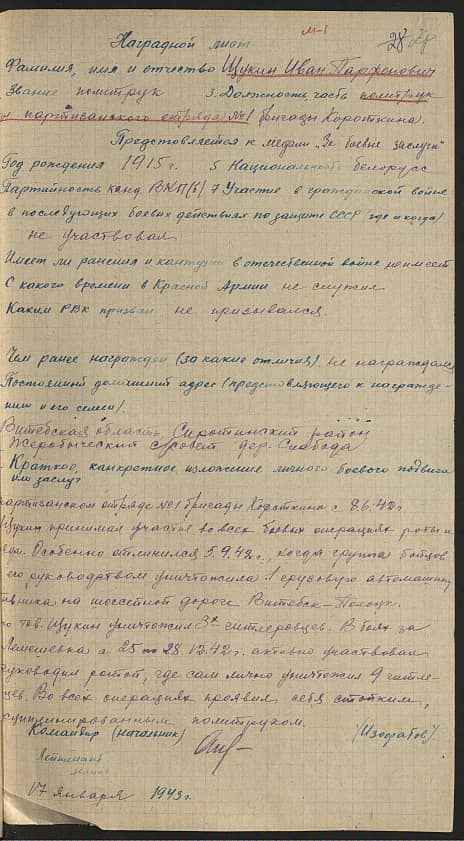 м-1
28
Наградной лист
Фамилия, имя и отчество Щукин Иван Парфенович
Звание политрук 3. Должность часть политрук
партизанского отряда №1 бригады Короткина.
Представляется к медали „За боевые заслуги"
Год рождения 1915 г. 5 Национальность белорус
Партийность канд. ВКП(б) 7 Участие в гражданской войне
в последующих боевых действиях по защите СССР (где и когда)
не участвовал
Имеет ли ранения и контузии в отечественной войне не имеет
С какого времени в Красной Армии не служил
Каким РВК призван не призывался.
Чем ранее награжден (за какие отличия) не награждался
Постоянный домашний адрес (представляющего к награжде-
нию и его семьи).
Витебская область Сиротинский район
Жеробыческий с/совет дер. Слабода
Краткое, конкретное изложение личного боевого подвига
или заслуг
партизанском отряде №1 бригады Короткина с 8.6.42 г.
Щукин принимал участие во всех боевых операциях роты и
Особенно отличился 5.9.42 г., когда группа бойцов
его руководством уничтожила 1 грузовую автомашину
на шоссейной дороге Витебск-Полоцк.
тов. Щукин уничтожил 3х гитлеровцев. В боях за
а 25 28.12.42 г. активно участвовал
руководил ротой, где сам лично уничтожил 9 гитле-
цев. Во всех операциях проявил себя стойким,
дисциплинированным политруком.
Командир (начальник) (Изофатов)
Лейтенант
17 января 1943 г.